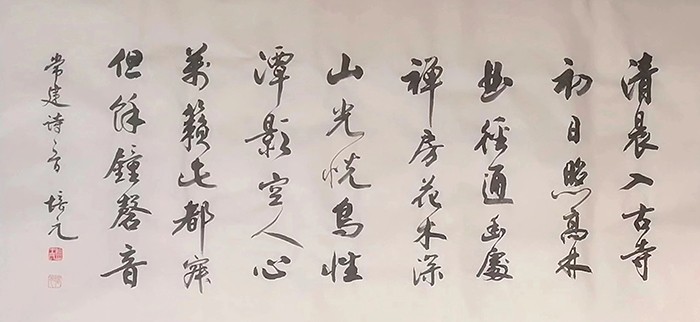 清晨入古寺
初日照高林
曲徑通幽處
禅房花木深
山光悦鳥性
潭影空人心
萬籟此都寂
但餘鐘磬音
常建詩一首 培元